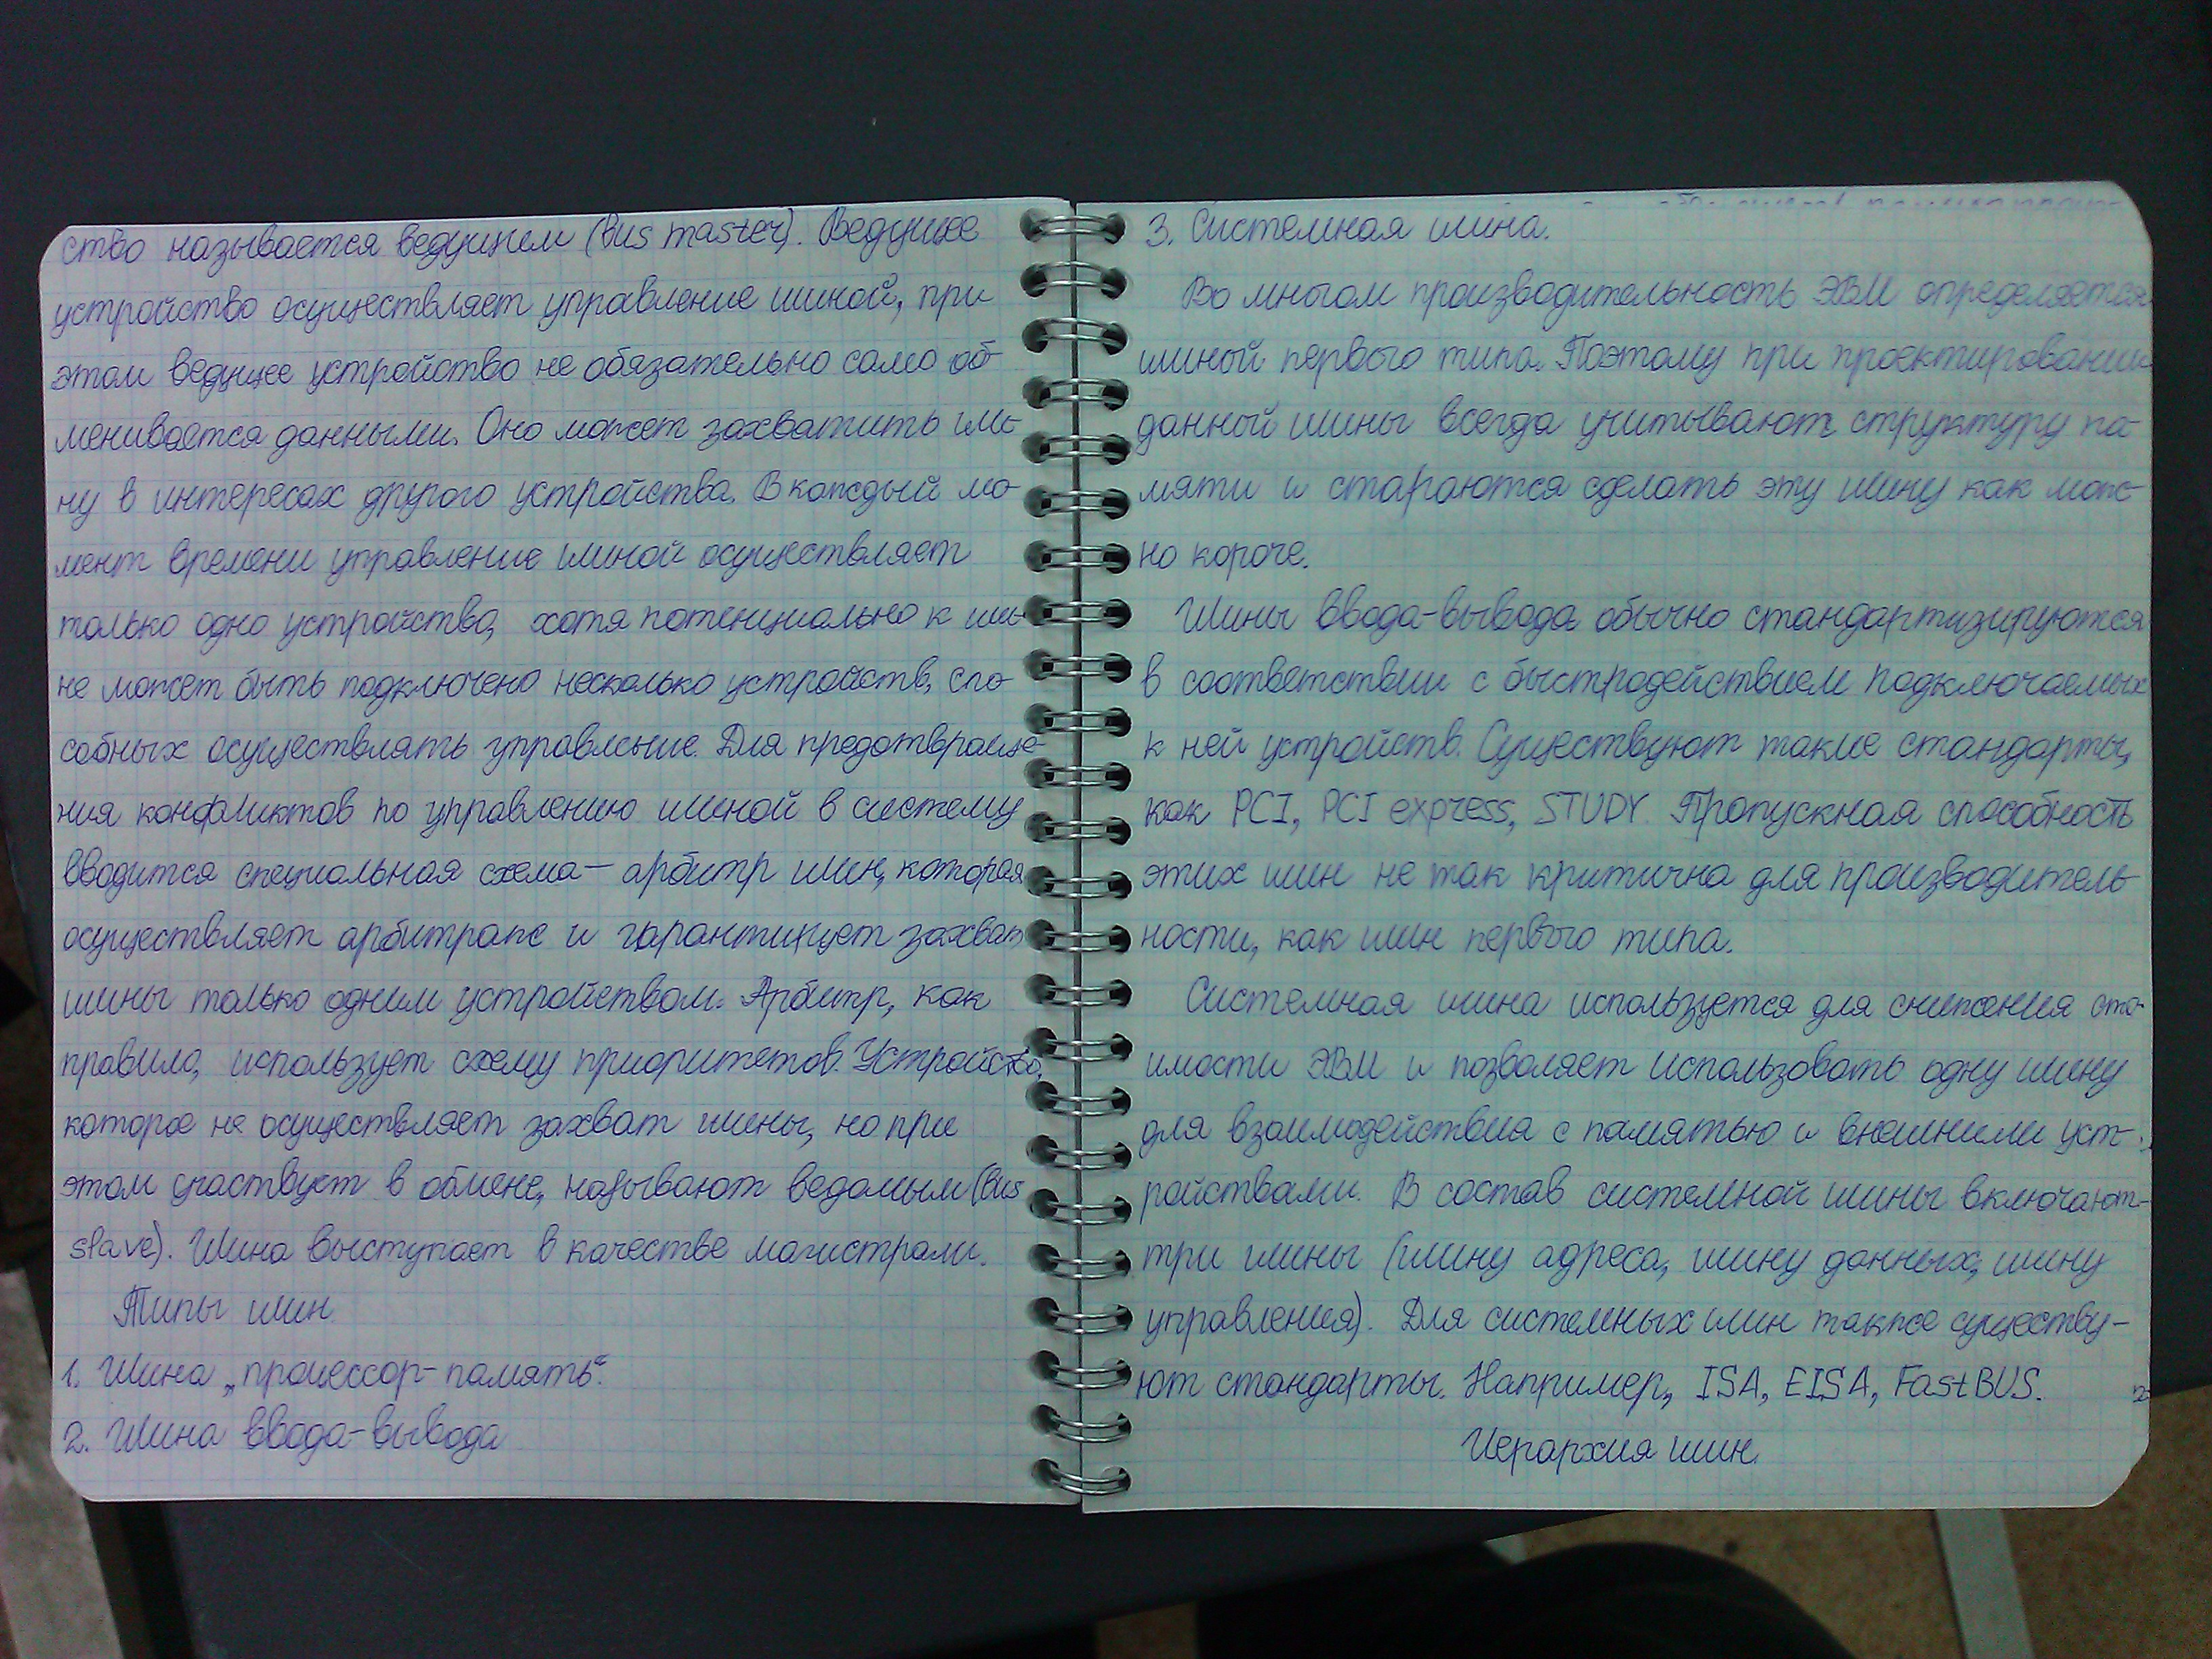 ство называется ведущем (Bus master). Ведущее
устройство осуществляет управление шиной, при
этом ведущее устройство не обязательно само об-
менивается данными. Оно может захватить ши-
ну в интересах другого устройства. В каждый мо-
мент времени управление шиной осуществляет
только одно устройство, хотя потенциально к ши-
не может быть подключено несколько устройств, спо-
собных осуществлять управление. Для предотвраще-
ния конфликтов по управлению шиной в систему
вводится специальная схема - арбитр шин, которая
осуществляет арбитраж и гарантирует захват
шины только одним устройством. Арбитр, как
правило, использует схему приоритетов. Устройство,
которое не осуществляет захват шины, но при
этом участвует в обмене, называют ведомым (Bus
slave). Шина выступает в качестве магистрали.
Типы шин
1. Шина „процессор-память".
2. Шина ввода-вывода
3. Системная шина.
Во многом производительность ЭВМ определяется
шиной первого типа. Поэтому при проектировании
данной шины всегда учитывают структуру па-
мяти и стараются сделать эту шину как мож-
но короче.
Шины ввода-вывода обычно стандартизируются
в соответствии с быстродействием подключаемых
к ней устройств. Существуют такие стандарты,
как PCI, PCI express, STUDY. Пропускная способность
этих шин не так критична для производитель-
ности, как шин первого типа.
Системная шина используется для снижения сто-
имости ЭВМ и позволяет использовать одну шину
для взаимодействия с памятью и внешними уст-
ройствами. В состав системной шины включают
три шины (шину адреса, шину данных, шину
управления). Для системных шин также существу-
ют стандарты. Например, ISA, EISA, FastBUS.
Иерархия шин.